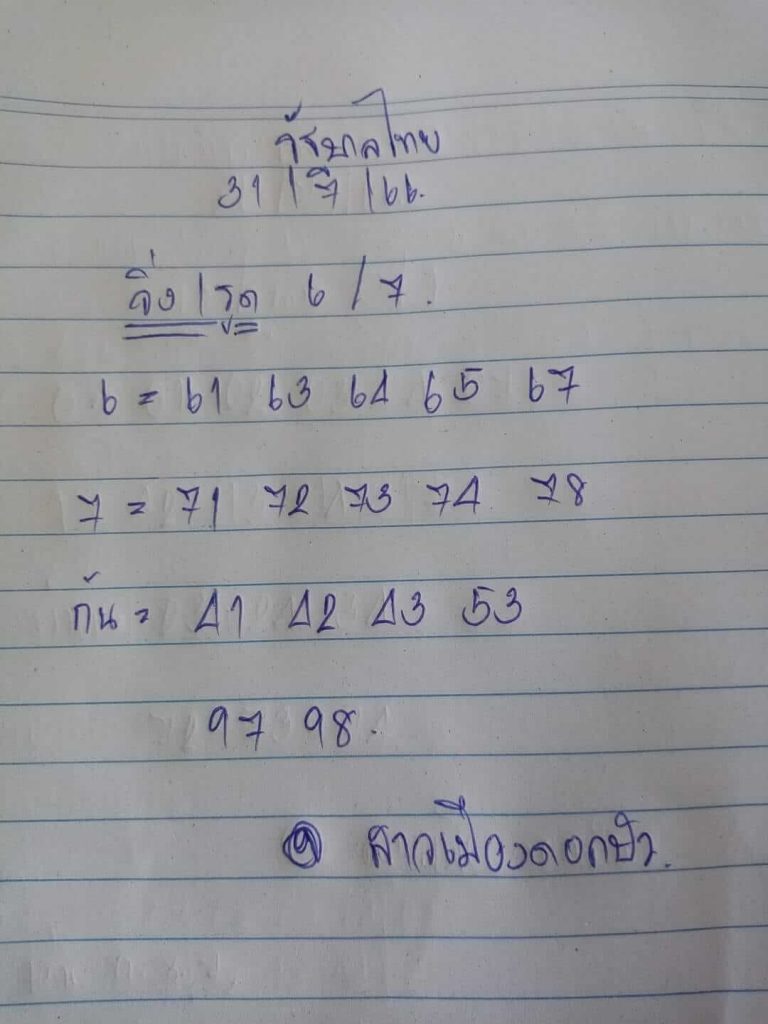 รัฐบาลไทย
31 / 7 / 66.
วิ่ง / รูด 6 / 7.
6 = 61 63 64 65 67
7 = 71 72 73 74 78
กัน = 41 42 43 53
97 98.
สาวเมืองดอกบัว.